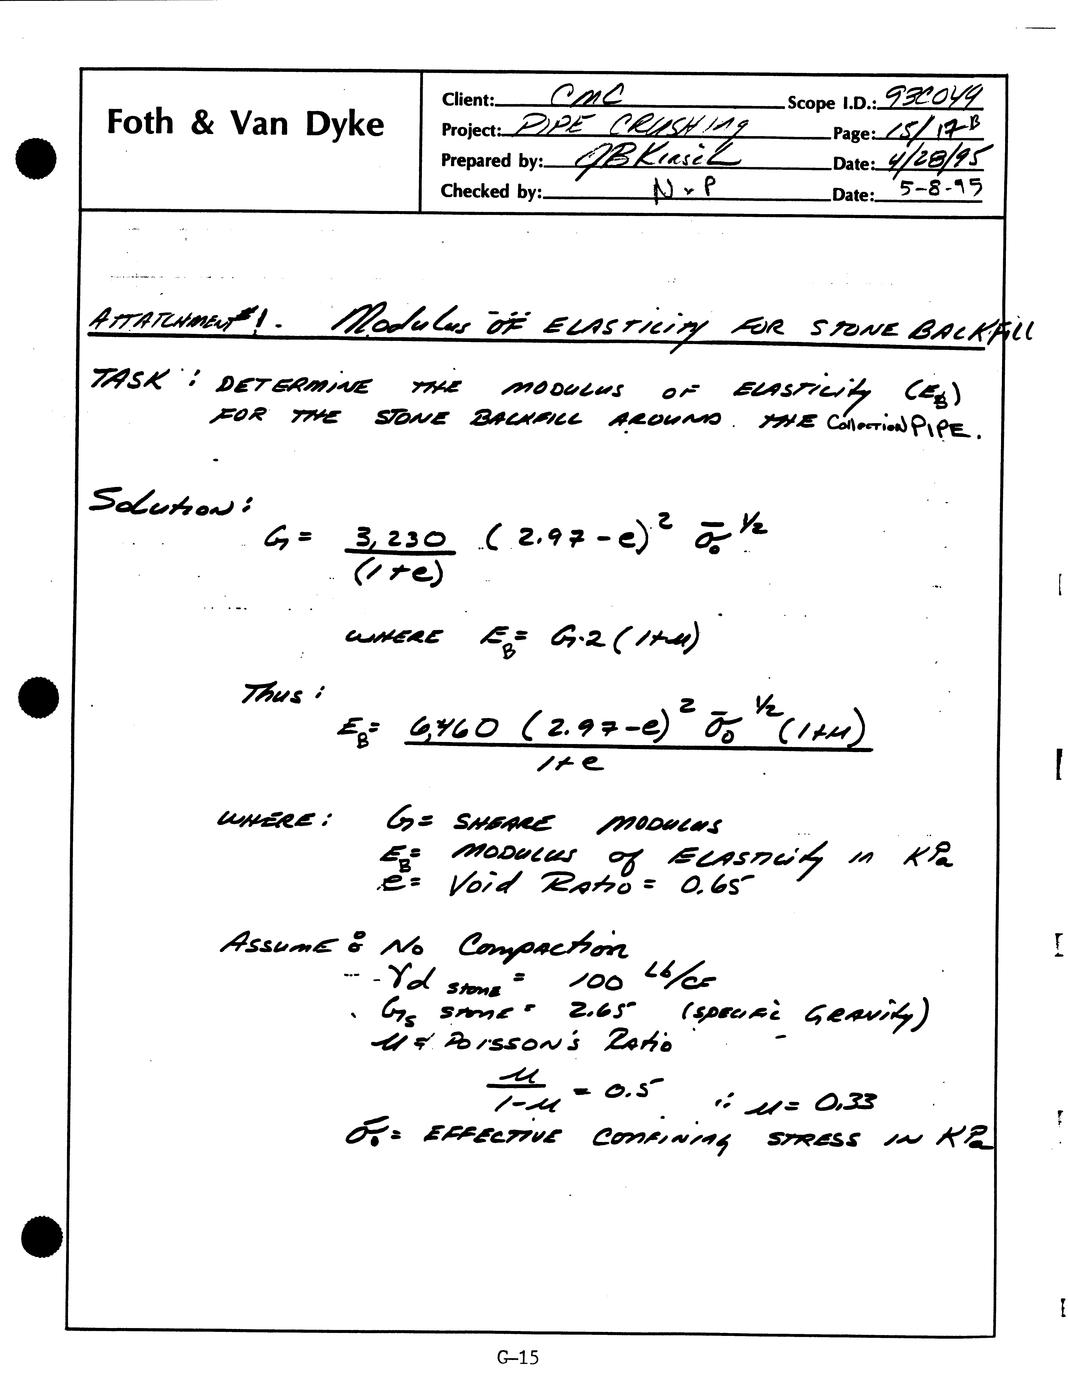 Foth & Van Dyke
Client: CMC Scope I.D.: 93C049
Project: PIPE CRUSHING Page: 15/17-B
Prepared by: JBKrasick Date: 4/28/95
Checked by: NxP Date: 5-8-95
ATTATCHMENT #1. Modulus OF ELASTICITY FOR STONE BACKFILL
TASK: DETERMINE THE MODULUS OF ELASTICITY (EB)
FOR THE STONE BACKFILL AROUND THE Collection PIPE.
Solution:
G = 3,230 / (1+e) (2.97-e)² σ̄₀^1/2
WHERE EB = G·2(1+μ)
Thus:
EB = 6,460 (2.97-e)² σ̄₀^1/2 (1+μ) / 1+e
WHERE: G = SHEARE MODULUS
EB = MODULUS of ELASTICITY in KPa
e = Void Ratio = 0.65
ASSUME: No Compaction
- γd STONE = 100 Lb/CF
Gs STONE = 2.65 (SPECIFIC GRAVITY)
μ = POISSON'S RATIO
μ / 1-μ = 0.5 ∴ μ = 0.33
σ̄₀ = EFFECTIVE CONFINING STRESS IN KPa
G-15